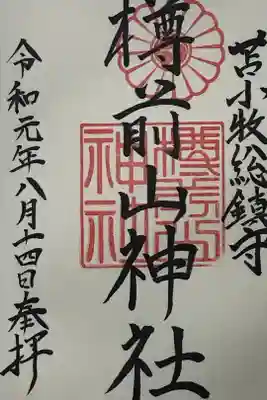 苫小牧総鎮守
樽前山神社
樽前山神社
令和元年八月十四日奉拝